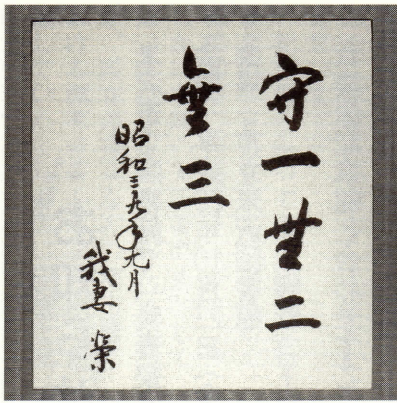 守一無二
無三
昭和三九年九月
我妻榮